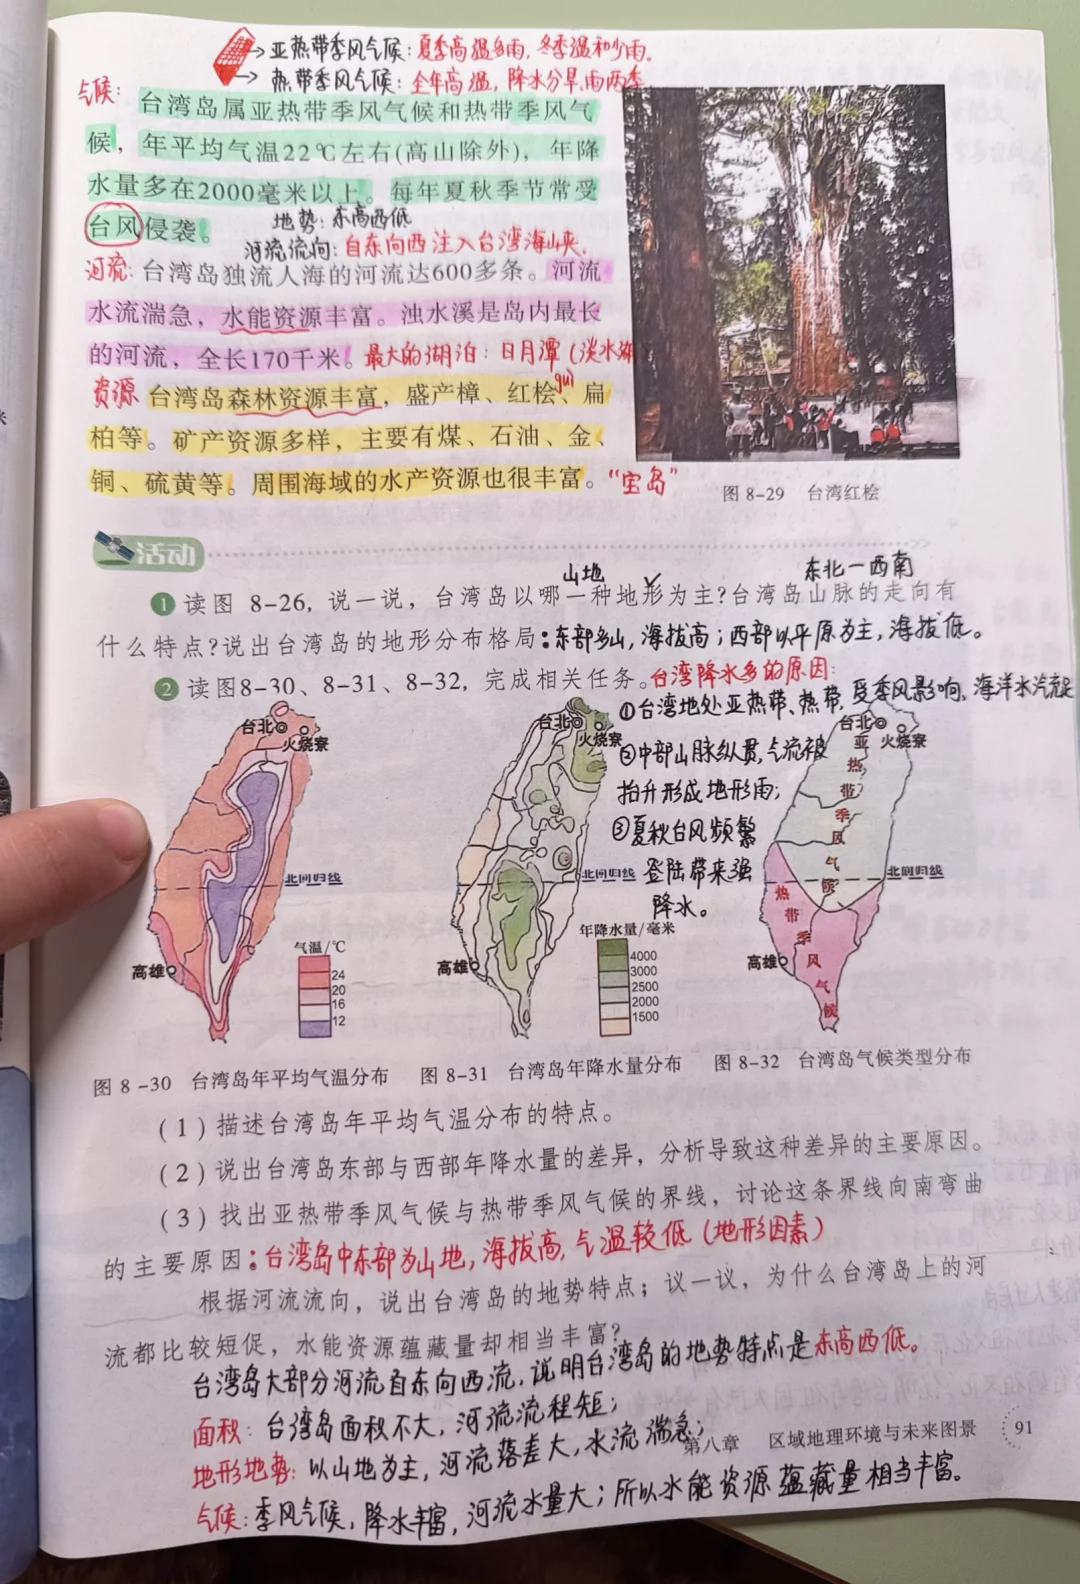 →亚热带季风气候：夏季高温多雨，冬季温和少雨。
→热带季风气候：全年高温，降水分旱雨两季
气候：
台湾岛属亚热带季风气候和热带季风气
候，年平均气温22℃左右(高山除外)，年降
水量多在2000毫米以上。每年夏秋季节常受
台风侵袭。
地势：东高西低
河流流向：自东向西注入台湾海峡.
河流：台湾岛独流入海的河流达600多条。河流
水流湍急，水能资源丰富。浊水溪是岛内最长
的河流，全长170千米。最大的湖泊：日月潭(淡水湖
guì
资源 台湾岛森林资源丰富，盛产樟、红桧、扁
柏等。矿产资源多样，主要有煤、石油、金、
铜、硫黄等。周围海域的水产资源也很丰富。“宝岛”
图 8-29 台湾红桧
活动
山地
东北—西南
1 读图 8-26，说一说，台湾岛以哪一种地形为主?台湾岛山脉的走向有
什么特点?说出台湾岛的地形分布格局：东部多山，海拔高；西部以平原为主，海拔低。
2 读图8-30、8-31、8-32，完成相关任务。台湾降水多的原因：
①台湾地处亚热带、热带，受季风影响，海洋水汽充足
②中部山脉纵贯，气流被
抬升形成地形雨；
③夏秋台风频繁
登陆带来强
降水。
台北
火烧寮
北回归线
高雄
气温/℃
24
20
16
12
台北
火烧寮
北回归线
高雄
年降水量/毫米
4000
3000
2500
2000
1500
台北
火烧寮
亚热带季风气候
北回归线
热带季风气候
高雄
图 8-30 台湾岛年平均气温分布
图 8-31 台湾岛年降水量分布
图 8-32 台湾岛气候类型分布
(1)描述台湾岛年平均气温分布的特点。
(2)说出台湾岛东部与西部年降水量的差异，分析导致这种差异的主要原因。
(3)找出亚热带季风气候与热带季风气候的界线，讨论这条界线向南弯曲
的主要原因：台湾岛中东部为山地，海拔高，气温较低(地形因素)
根据河流流向，说出台湾岛的地势特点；议一议，为什么台湾岛上的河
流都比较短促，水能资源蕴藏量却相当丰富?
台湾岛大部分河流自东向西流，说明台湾岛的地势特点是东高西低。
面积：台湾岛面积不大，河流流程短；
地形地势：以山地为主，河流落差大，水流湍急；
第八章 区域地理环境与未来图景 91
气候：季风气候，降水丰富，河流水量大；所以水能资源蕴藏量相当丰富。